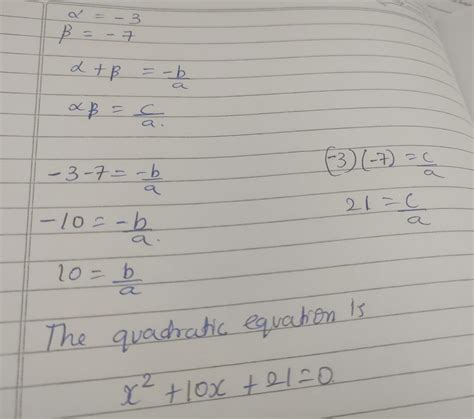 α = -3
β = -7
α + β = -b/a
αβ = c/a.
-3-7 = -b/a
(-3)(-7) = c/a
-10 = -b/a.
21 = c/a
10 = b/a
The quadratic equation is
x² + 10x + 21 = 0